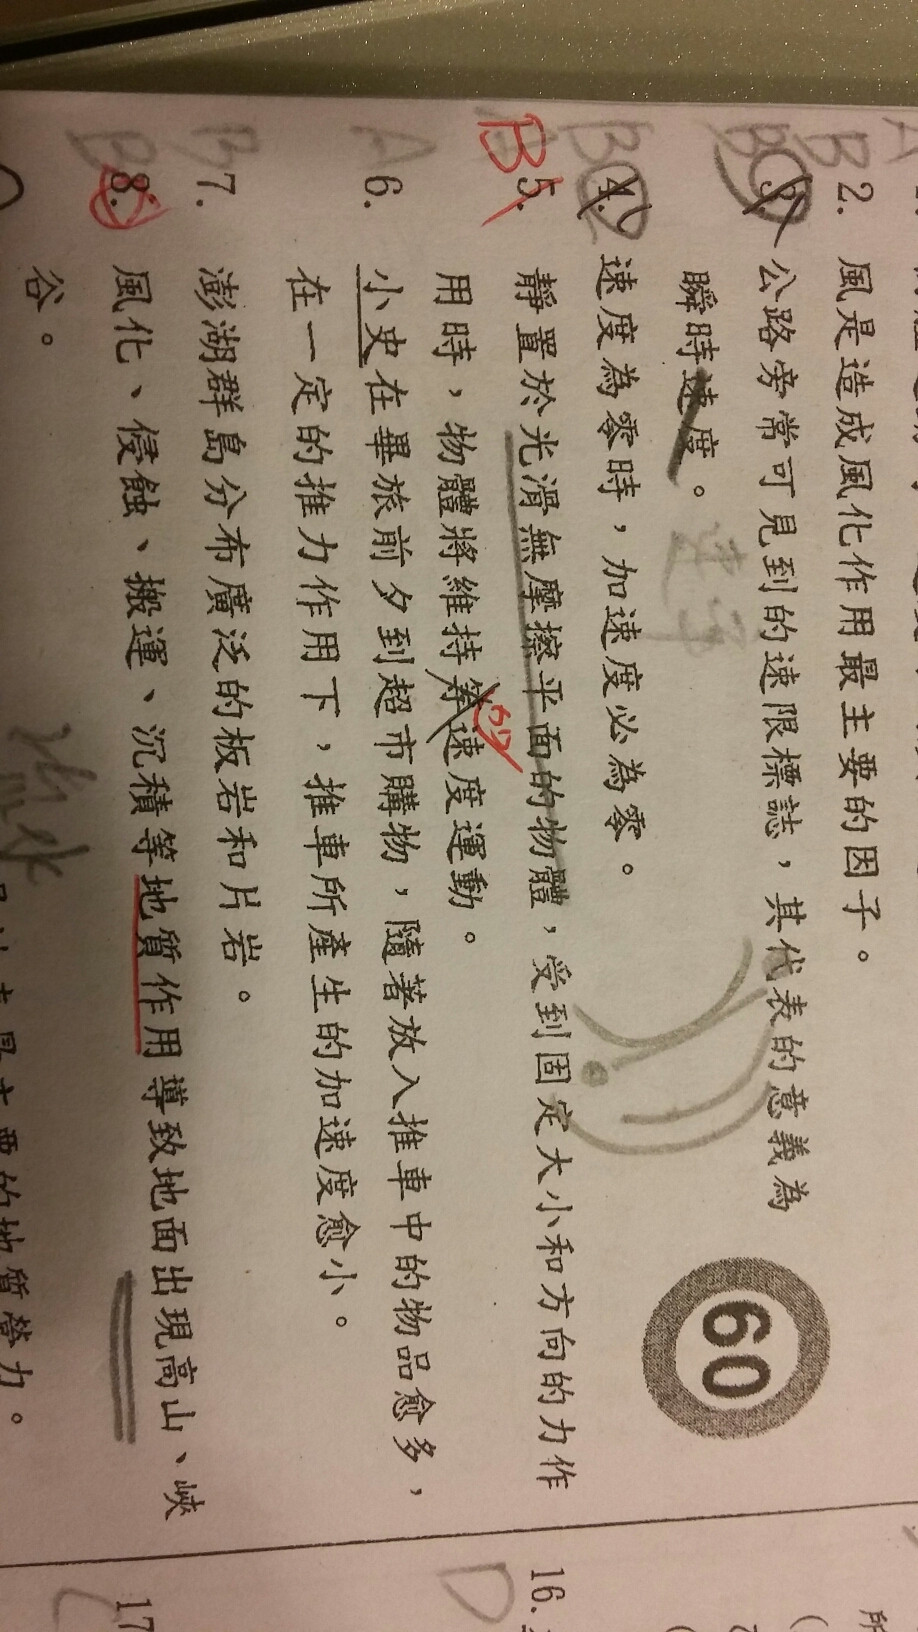 B 2. 風是造成風化作用最主要的因子。
B 3. 公路旁常可見到的速限標誌，其代表的意義為
瞬時速度。
60
B 4. 速度為零時，加速度必為零。
B 5. 靜置於光滑無摩擦平面的物體，受到固定大小和方向的力作
用時，物體將維持等速度運動。
A 6. 小史在畢旅前夕到超市購物，隨著放入推車中的物品愈多，
在一定的推力作用下，推車所產生的加速度愈小。
B 7. 澎湖群島分布廣泛的板岩和片岩。
B 8. 風化、侵蝕、搬運、沉積等地質作用導致地面出現高山、峽
谷。
流水
D 16.
17